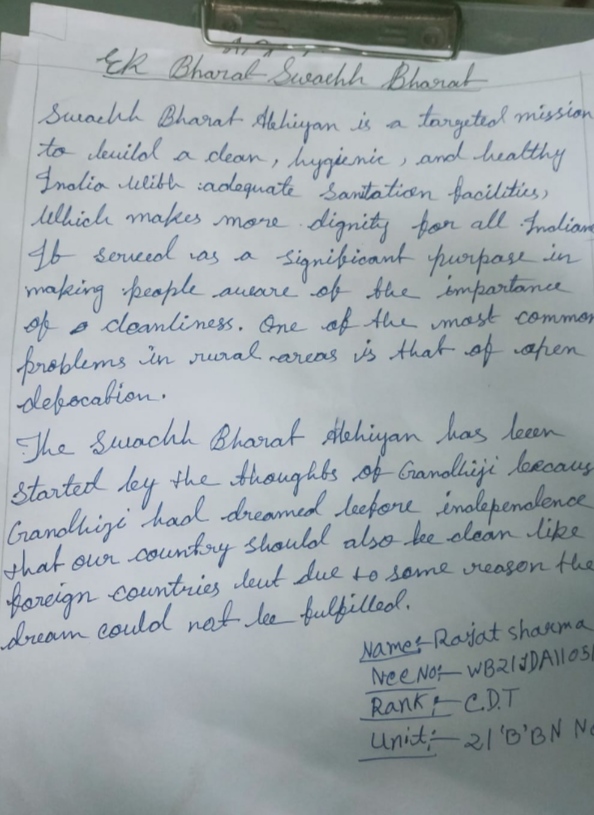 Ek Bharat Swachh Bharat
Swachh Bharat Abhiyan is a targeted mission
to build a clean, hygienic, and healthy
India With adequate Sanitation facilities,
Which makes more dignity for all Indian
It served as a significant purpose in
making people aware of the importance
of cleanliness. One of the most common
problems in rural areas is that of open
defecation.
The Swachh Bharat Abhiyan has been
started by the thoughts of Gandhiji becaus
Gandhiji had dreamed before independence
that our country should also be clean like
foreign countries but due to some reason the
dream could not be fulfilled.
Name:- Rajat sharma
Ncc No:- WB21JDA11051
Rank:- C.D.T
Unit:- 21 'B' BN Nc